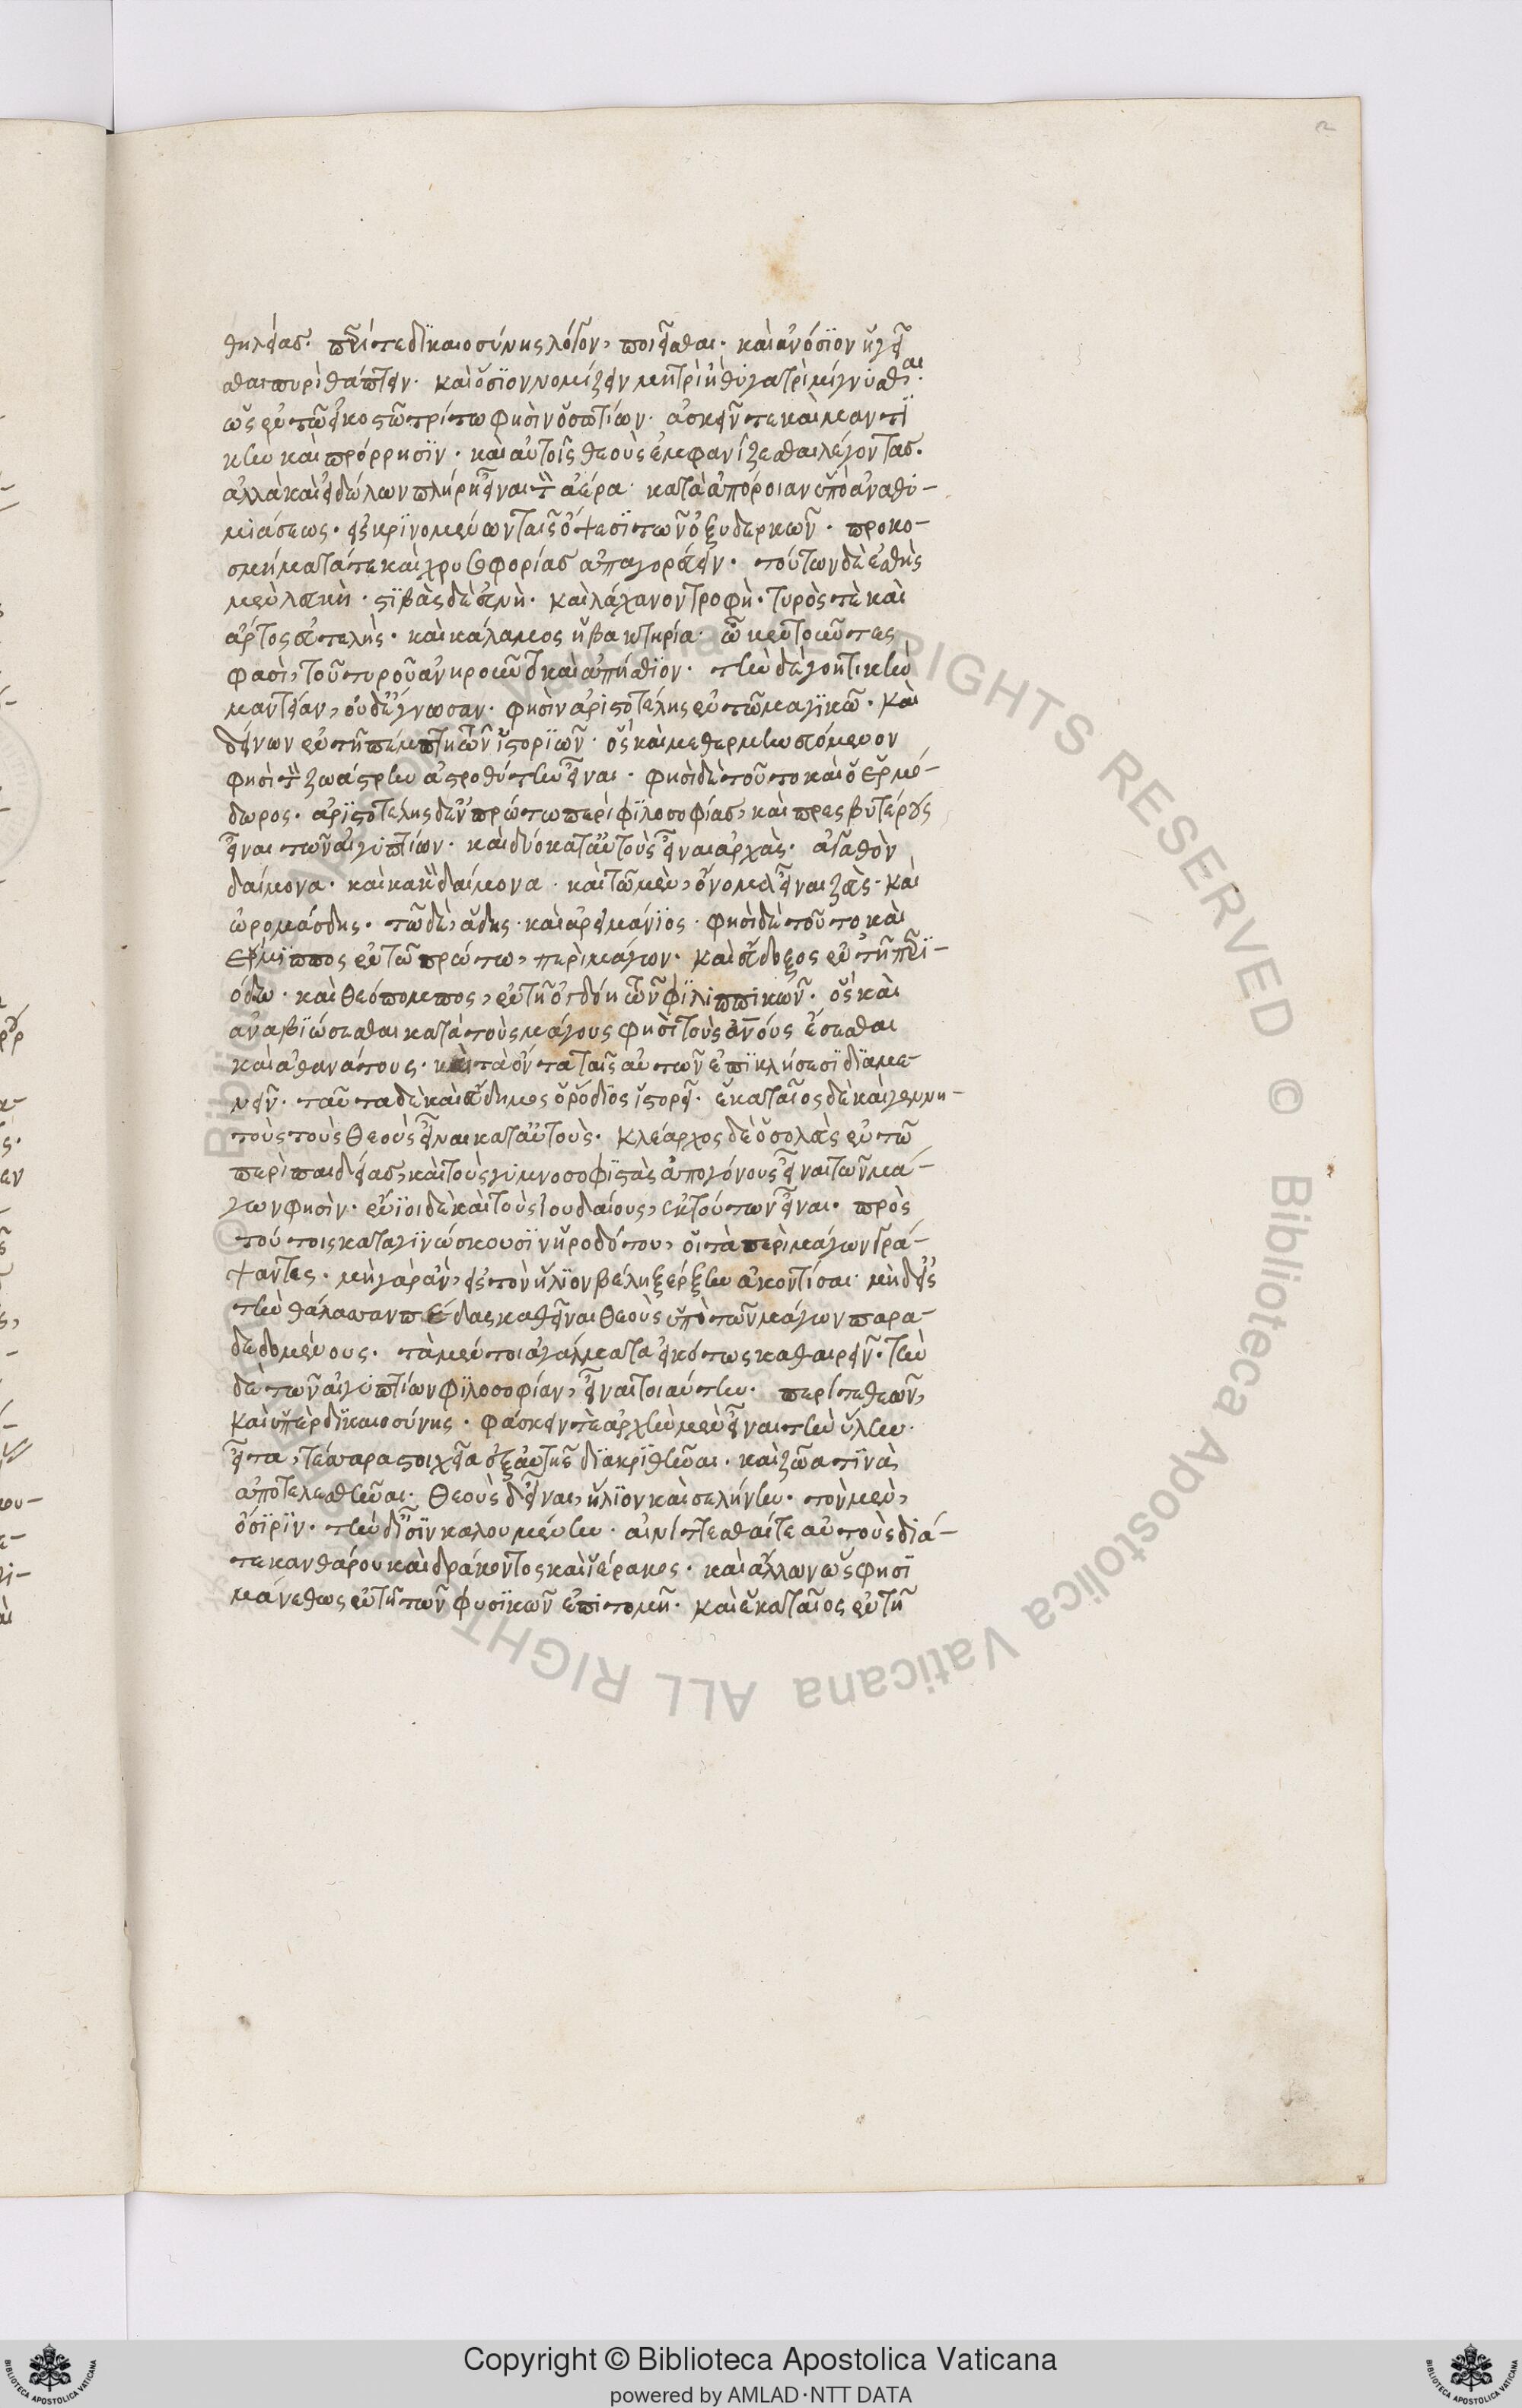 θηλείας. περίτε δϊκαιοσύνης λόγον, ποιεῖσθαι. καὶ ἀνόσϊον ἡγεῖ
σθαι πυρὶ θάπτειν. καὶ ὅσϊον νομίζειν μητρὶ ἢ θυγατρὶ μίγνυσθαι.
ὡς ἐν τῶ εἰκοστῶ τρίτω φησὶν ὁ σωτίων. ἀσκεῖν τε καὶ μαντϊ
κὴν καὶ πρόρρησϊν. καὶ αὐτοῖς θεοὺς ἐμφανίζεσθαι λέγοντας.
ἀλλὰ καὶ εἰδώλων πλήρη εἶναι τὸν ἀέρα. κατὰ ἀπόροιαν ὑπὸ ἀναθυ-
μιάσεως. εἰσκρϊνομένων ταῖς ὄψεσϊ τῶν ὀξυδερκῶν. προκο-
σμήματά τε καὶ χρυσοφορίας ἀπαγορεύειν. τούτων δὲ ἐσθὴς
μὲν λευκὴ. στϊβὰς δὲ εὐνὴ. καὶ λάχανον τροφὴ. τυρός τε καὶ
ἄρτος εὐτελὴς. καὶ κάλαμος ἡ βακτηρία. ὧ κεντοῦντες
φασὶ, τοῦ τυροῦ ἀνηροῦντο καὶ ἀπήσθϊον. τὴν δὲ γοητικὴν
μαντείαν, οὐδ' ἔγνωσαν. φησὶν ἀριστοτέλης ἐν τῶ μαγϊκῶ. καὶ
δείνων ἐν τῆ πέμπτη τῶν ἱστορϊῶν. ὃς καὶ μεθερμηνευόμενον
φησὶ τὸν ζωάστρην ἀστροθύτην εἶναι. φησὶ δὲ τοῦτο καὶ ὁ ἑρμό-
δωρος. ἀρϊστοτέλης δ' ἐν πρώτω περὶ φϊλοσοφίας, καὶ πρεσβυτέρους
εἶναι τῶν αἰγυπτίων. καὶ δύο κατ' αὐτοὺς εἶναι ἀρχὰς. ἀγαθὸν
δαίμονα. καὶ κακὸν δαίμονα. καὶ τῶ μὲν, ὄνομα εἶναι ζεὺς. καὶ
ὡρομάσδης. τῶ δὲ, ἅδης. καὶ ἀρειμάνϊος. φησὶ δὲ τοῦτο καὶ
ἕρμϊππος ἐν τῶ πρώτω, περὶ μάγων. καὶ εὔδοξος ἐν τῆ περϊ-
όδω. καὶ θεόπομπος, ἐν τῆ ὀγδόη τῶν φϊλιππικῶν. ὃς καὶ
ἀναβϊώσεσθαι κατὰ τοὺς μάγους φησὶ τοὺς ἀνους ἔσεσθαι
καὶ ἀθανάτους. καὶ τὰ ὄντα ταῖς αὐτῶν ἐπϊκλήσεσϊ δϊαμε
νεῖν. ταῦτα δὲ καὶ εὔδημος ὁ ῥόδϊος ἱστορεῖ. ἑκαταῖος δὲ καὶ γεννη-
τοὺς τοὺς θεοὺς εἶναι κατ' αὐτοὺς. κλέαρχος δὲ ὁ σολεὺς ἐν τῶ
περὶ παιδείας, καὶ τοὺς γυμνοσοφϊστὰς ἀπογόνους εἶναι τῶν μά-
γων φησὶν. ἔνϊοι δὲ καὶ τοὺς ἰουδαίους, ἐκ τούτων εἶναι. πρὸς
τούτοις καταγϊνώσκουσϊν ἡροδότου, οἱ τὰ περὶ μάγων γρά-
ψαντες. μὴ γὰρ ἂν, εἰς τὸν ἥλϊον βέλη ξέρξην ἀκοντίσαι. μὴδ' εἰς
τὴν θάλασσαν πέδας καθεῖναι θεοὺς ὑπὸ τῶν μάγων παρα-
δεδομένους. τὰ μέντοι ἀγάλματα εἰκότως καθαιρεῖν. τὴν
δὲ τῶν αἰγυπτίων φϊλοσοφίαν, εἶναι τοιαύτην. περί τε θεῶν,
καὶ ὑπὲρ δϊκαιοσύνης. φάσκειν τε ἀρχὴν μὲν εἶναι τὴν ὕλην.
εἶτα, τέσσαρα στοιχεῖα ἐξ αὐτῆς δϊακρϊθῆναι. καὶ ζῶα τϊνὰ
ἀποτελεσθῆναι. θεοὺς δ' εἶναι, ἥλϊον καὶ σελήνην. τὸν μὲν,
ὄσϊρϊν. τὴν δ' ἶσϊν καλουμένην. αἰνίττεσθαί τε αὐτοὺς διά-
τε κανθάρου καὶ δράκοντος καὶ ἱέρακος. καὶ ἄλλων ὥς φησϊ
μάνεθως ἐν τῆ τῶν φυσϊκῶν ἐπιτομῆ. καὶ ἑκαταῖος ἐν τῆ